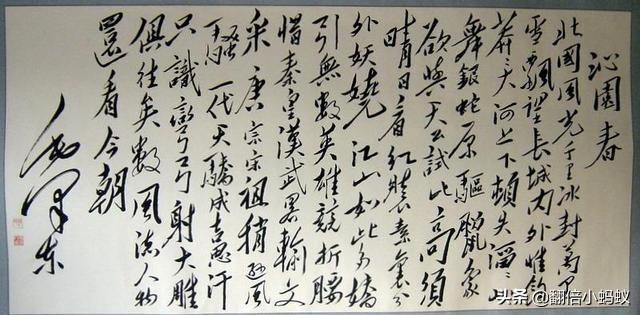 沁園春
北國風光千里冰封萬里
雪飄望長城内外惟餘
莽〻大河上下頓失滔〻山
舞銀蛇原驅臘象
欲與天公試比高須
晴日看紅裝素裹分
外妖嬈江山如此多嬌
引無數英雄競折腰
惜秦皇漢武畧輸文
采唐宗宋祖稍遜風
騷一代天驕成吉思汗
只識彎弓射大雕
俱往矣數風流人物
還看今朝
毛澤东
头条 @翻倍小蚂蚁